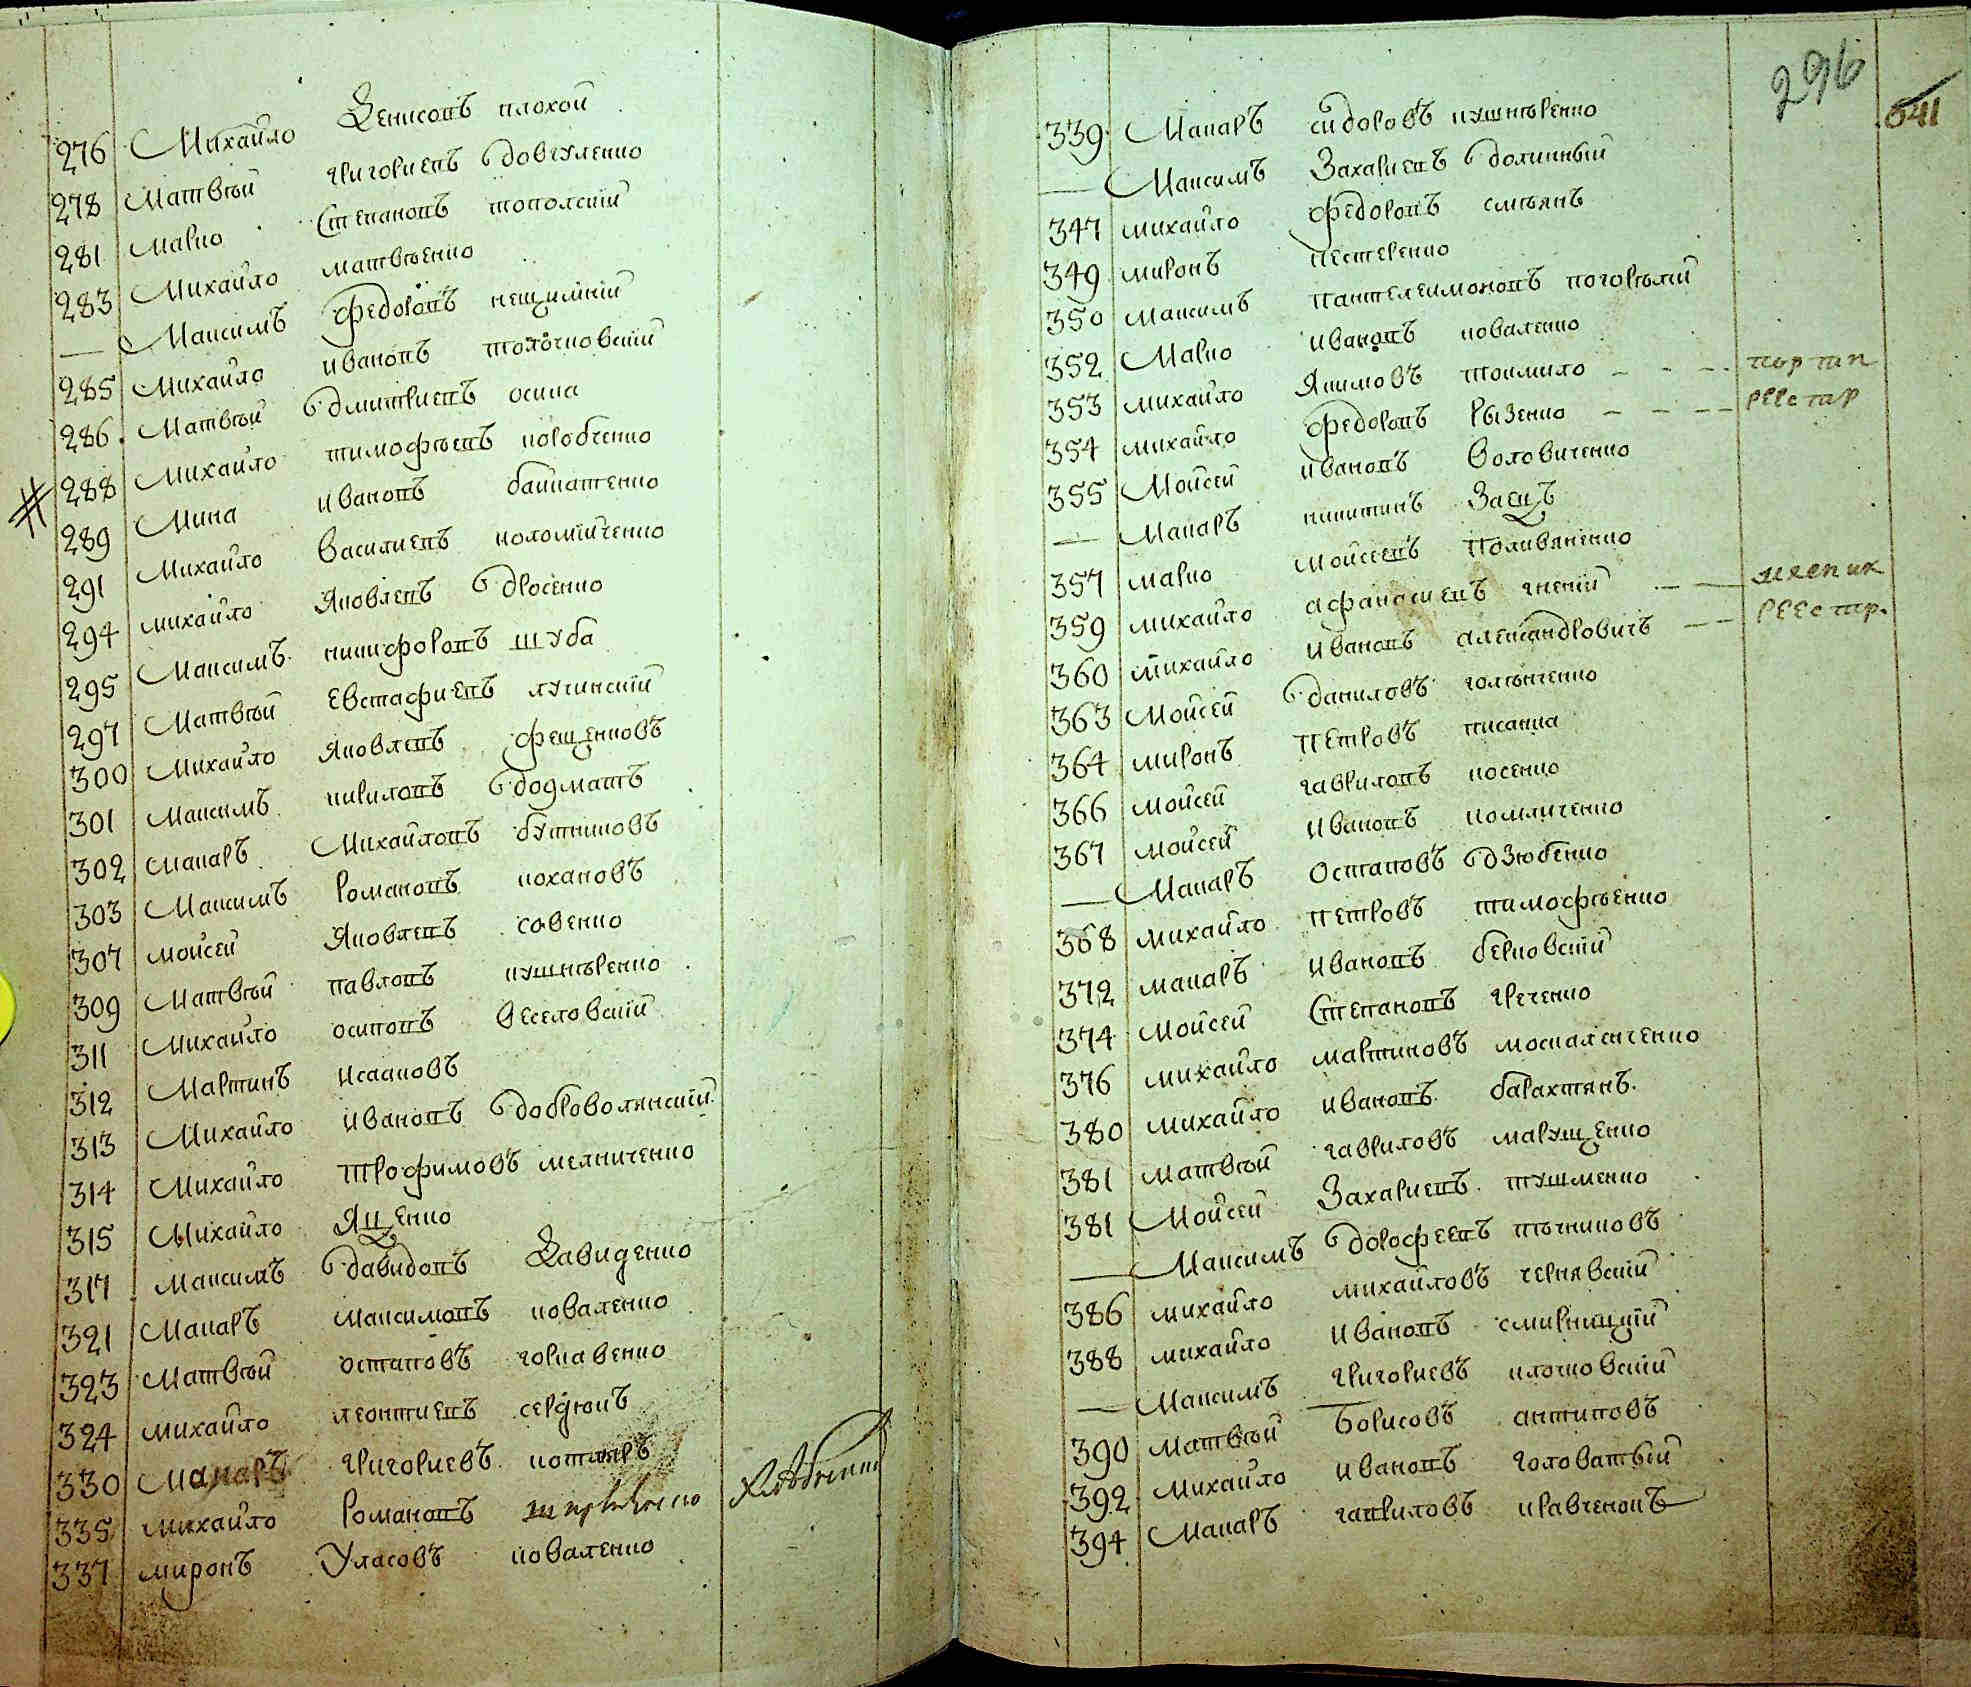 276 Михайло Денисовъ плохой
278 Матвѣй григориевъ довгуленко
281 марко Степановъ топольскій
283 Михайло матвѣенко
— Максимъ федоровъ нещимній
285 Михайло ивановъ толочковскій
286 Матвѣй дмитриевъ осика
288 Михайло тимофѣевъ коробченко
289 Мина ивановъ
291 Михайло василиевъ коломійченко
294 михайло Яковлевъ дросенко
295 Максимъ никифоровъ шуба
297 Матвѣй евстафиевъ лучинскій
300 Михайло Яковлевъ фещенковъ
301 Максимъ кириловъ
302 макаръ Михайловъ бутниковъ
303 Максимъ Романовъ кохановъ
307 мойсей Яковлевъ савенко
309 Матвѣй павловъ кушнѣренко
311 Михайло осиповъ веселовскій
312 Мартинъ исааковъ
313 Михайло ивановъ доброволянскій
314 Михайло трофимовъ мелниченко
315 Михайло Яценко
317 максимъ давидовъ Давиденко
321 Макаръ максимовъ коваленко
323 Матвѣй остаповъ горкавенко
324 михайло леонтиевъ сердюкъ
330 Макаръ григориевъ котляръ
335 михайло Романовъ
337 миронъ Уласовъ коваленко
296
641
339 Макаръ сидоровъ кушнѣренко
— Максимъ Захариевъ долинный
347 михайло федоровъ смѣянъ
349 миронъ нестеренко
350 максимъ пантелеимоновъ погорѣлий
352 Марко ивановъ коваленко
353 михайло Якимовъ томило
354 михайло федоровъ Рызенко реестар
355 Мойсей ивановъ воловиченко
— Макаръ никитинъ Заецъ
357 марко мойсеевъ Поливяненко
359 михайло афанасиевъ гнений
360 михайло ивановъ александровичъ реестр.
363 Мойсей даниловъ голѣнченко
364 миронъ Петровъ писанка
366 мойсей гавриловъ косенко
367 мойсей ивановъ
— Макаръ Остаповъ дзюбенко
368 михайло петровъ тимофѣенко
372 макаръ ивановъ берковскій
374 Мойсей Степановъ гречко
376 михайло мартиновъ москаленченко
380 михайло ивановъ барахтянъ
381 матвѣй гавриловъ марущенко
381 Мойсей Захариевъ тушменко
— Максимъ дорофеевъ птичниковъ
386 михайло михайловъ чернявскій
388 михайло ивановъ смирницкій
— Максимъ григориевъ плотовскій
390 матвѣй Борисовъ антиповъ
392 Михайло ивановъ головатый
394 Макаръ гавриловъ кравченокъ